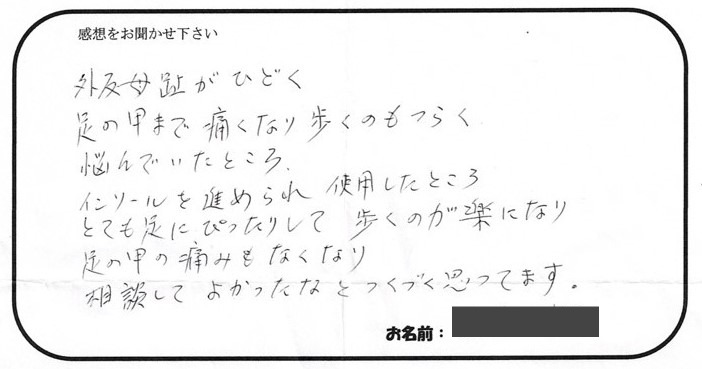 感想をお聞かせ下さい
外反母趾がひどく
足の甲まで痛くなり歩くのもつらく
悩んでいたところ、
インソールを進められ 使用したところ
とても足にぴったりして 歩くのが楽になり
足の甲の痛みもなくなり
相談して よかったなとつくづく思ってます。
お名前：